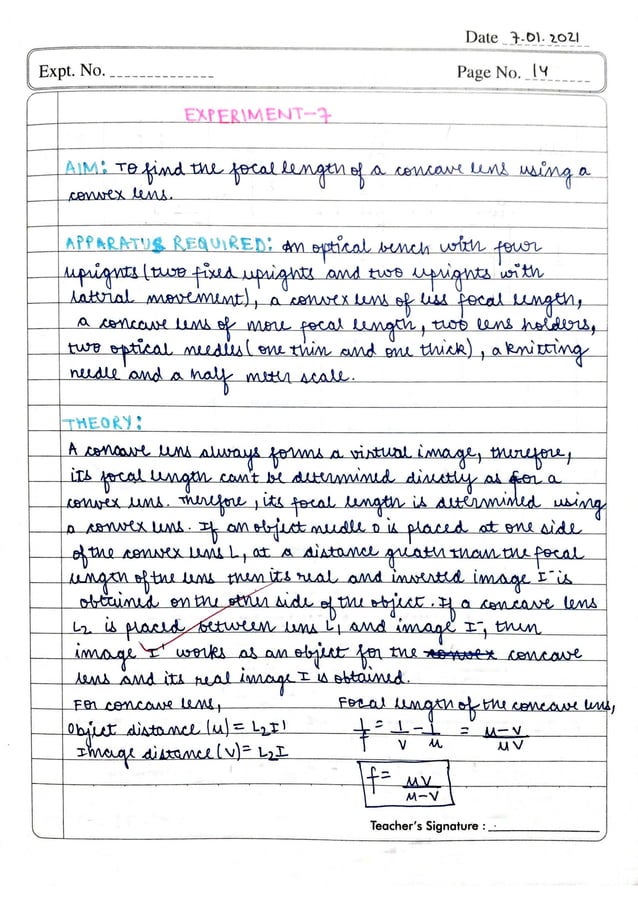 Date 7.01.2021
Expt. No.
Page No. 14
EXPERIMENT-7
AIM: To find the focal length of a concave lens using a
convex lens.
APPARATUS REQUIRED: An optical bench with four
uprights (two fixed uprights and two uprights with
lateral movement), a convex lens of less focal length,
a concave lens of more focal length, two lens holders,
two optical needles (one thin and one thick), a knitting
needle and a half meter scale.
THEORY:
A concave lens always forms a virtual image, therefore,
its focal length can't be determined directly as for a
convex lens. Therefore, its focal length is determined using
a convex lens. If an object needle O is placed at one side
of the convex lens L, at a distance greater than the focal
length of the lens then its real and inverted image I' is
obtained on the other side of the object. If a concave lens
L2 is placed between lens L1 and image I', then
image I' works as an object for the convex concave
lens and its real image I is obtained.
For concave lens,
Focal length of the concave lens,
Object distance (u) = L2I'
1/f = 1/v - 1/u = u-v/uv
Image distance (v) = L2I
f = uv/u-v
Teacher's Signature :